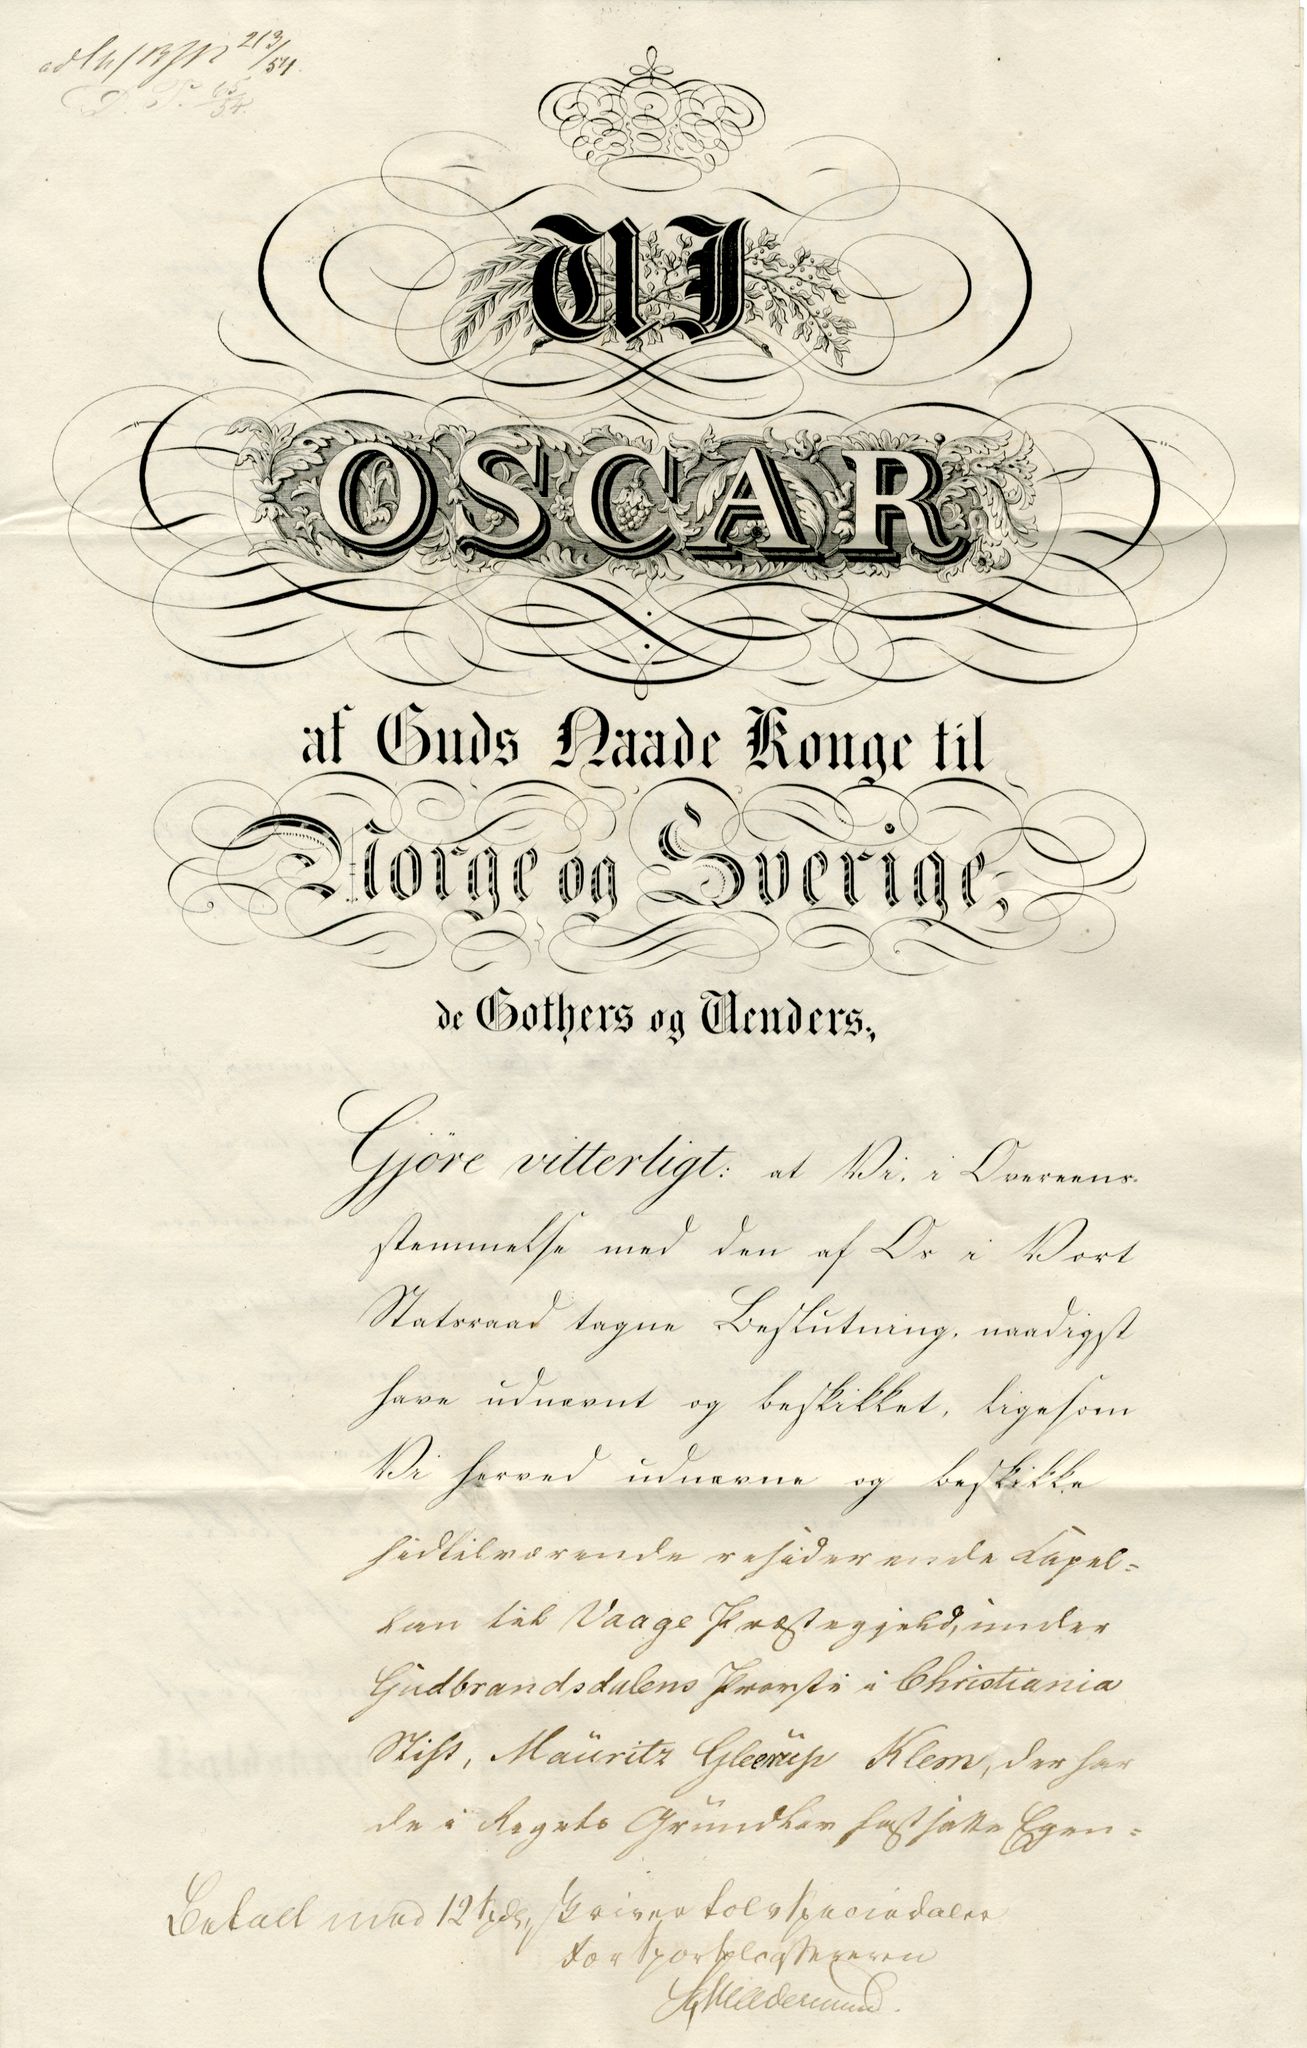 213/54.
D. T. 65/54.
VI
OSCAR
af Guds Naade Konge til
Norge og Sverige,
de Gothers og Venders,
Gjöre vitterligt: at Vi, i Overeens-
stemmelse med den af Os i Vort
Statsraad tagne Beslutning, naadigst
have udnævnt og beskikket, ligesom
Vi herved udnævne og beskikke
hidtilværende residerende Capel=
lan til Vaage Præstegjeld, under
Gudbrandsdalens Provsti i Christiania
Stift, Mauritz Gleerup Klem, der har
de i Rigets Grundlov fastsatte Egen=
Betalt med 12 Spdlr, skriver tolv Speciedaler